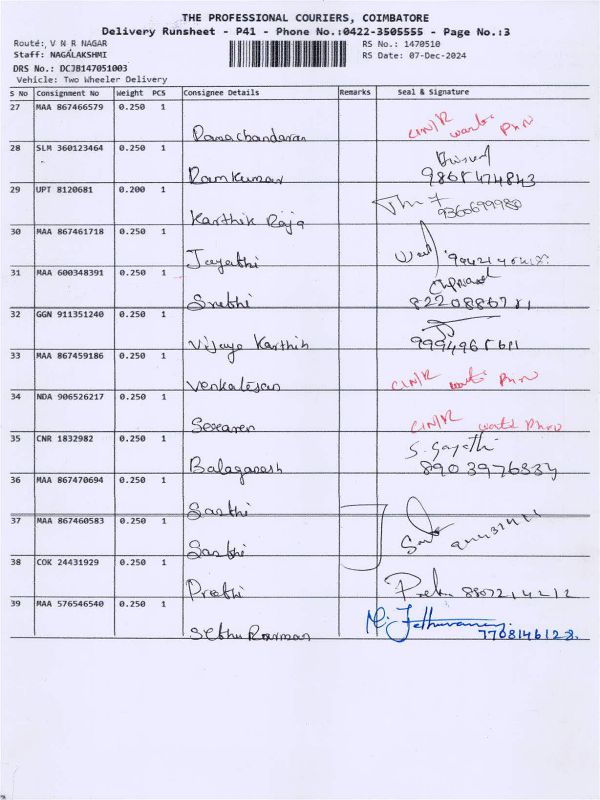 THE PROFESSIONAL COURIERS, COIMBATORE
Delivery Runsheet - P41 - Phone No.:0422-3505555 - Page No.:3
Route: V N R NAGAR
RS No.: 1470510
Staff: NAGALAKSHMI
RS Date: 07-Dec-2024
DRS No.: DCJB147051003
Vehicle: Two Wheeler Delivery
S No Consignment No Weight PCS Consignee Details Remarks Seal & Signature
27 MAA 867466579 0.250 1
Ramachandaran
28 SLM 360123464 0.250 1
Ramkumar 9865474843
29 UPT 8120681 0.200 1
Karthik Raja 9360699980
30 MAA 867461718 0.250 1
Jayathi
31 MAA 600348391 0.250 1
Srethi 8220886781
32 GGN 911351240 0.250 1
Vijaya Karthik
33 MAA 867459186 0.250 1
Venkatesan
34 NDA 906526217 0.250 1
35 CNR 1832982 0.250 1
S. Gayathi
Balaganesh 8903976334
36 MAA 867470694 0.250 1
Sasthi
37 MAA 867460583 0.250 1
Sasthi
38 COK 24431929 0.250 1
Preethi 8807214212
39 MAA 576546540 0.250 1
Sethu Raman 7708146128.